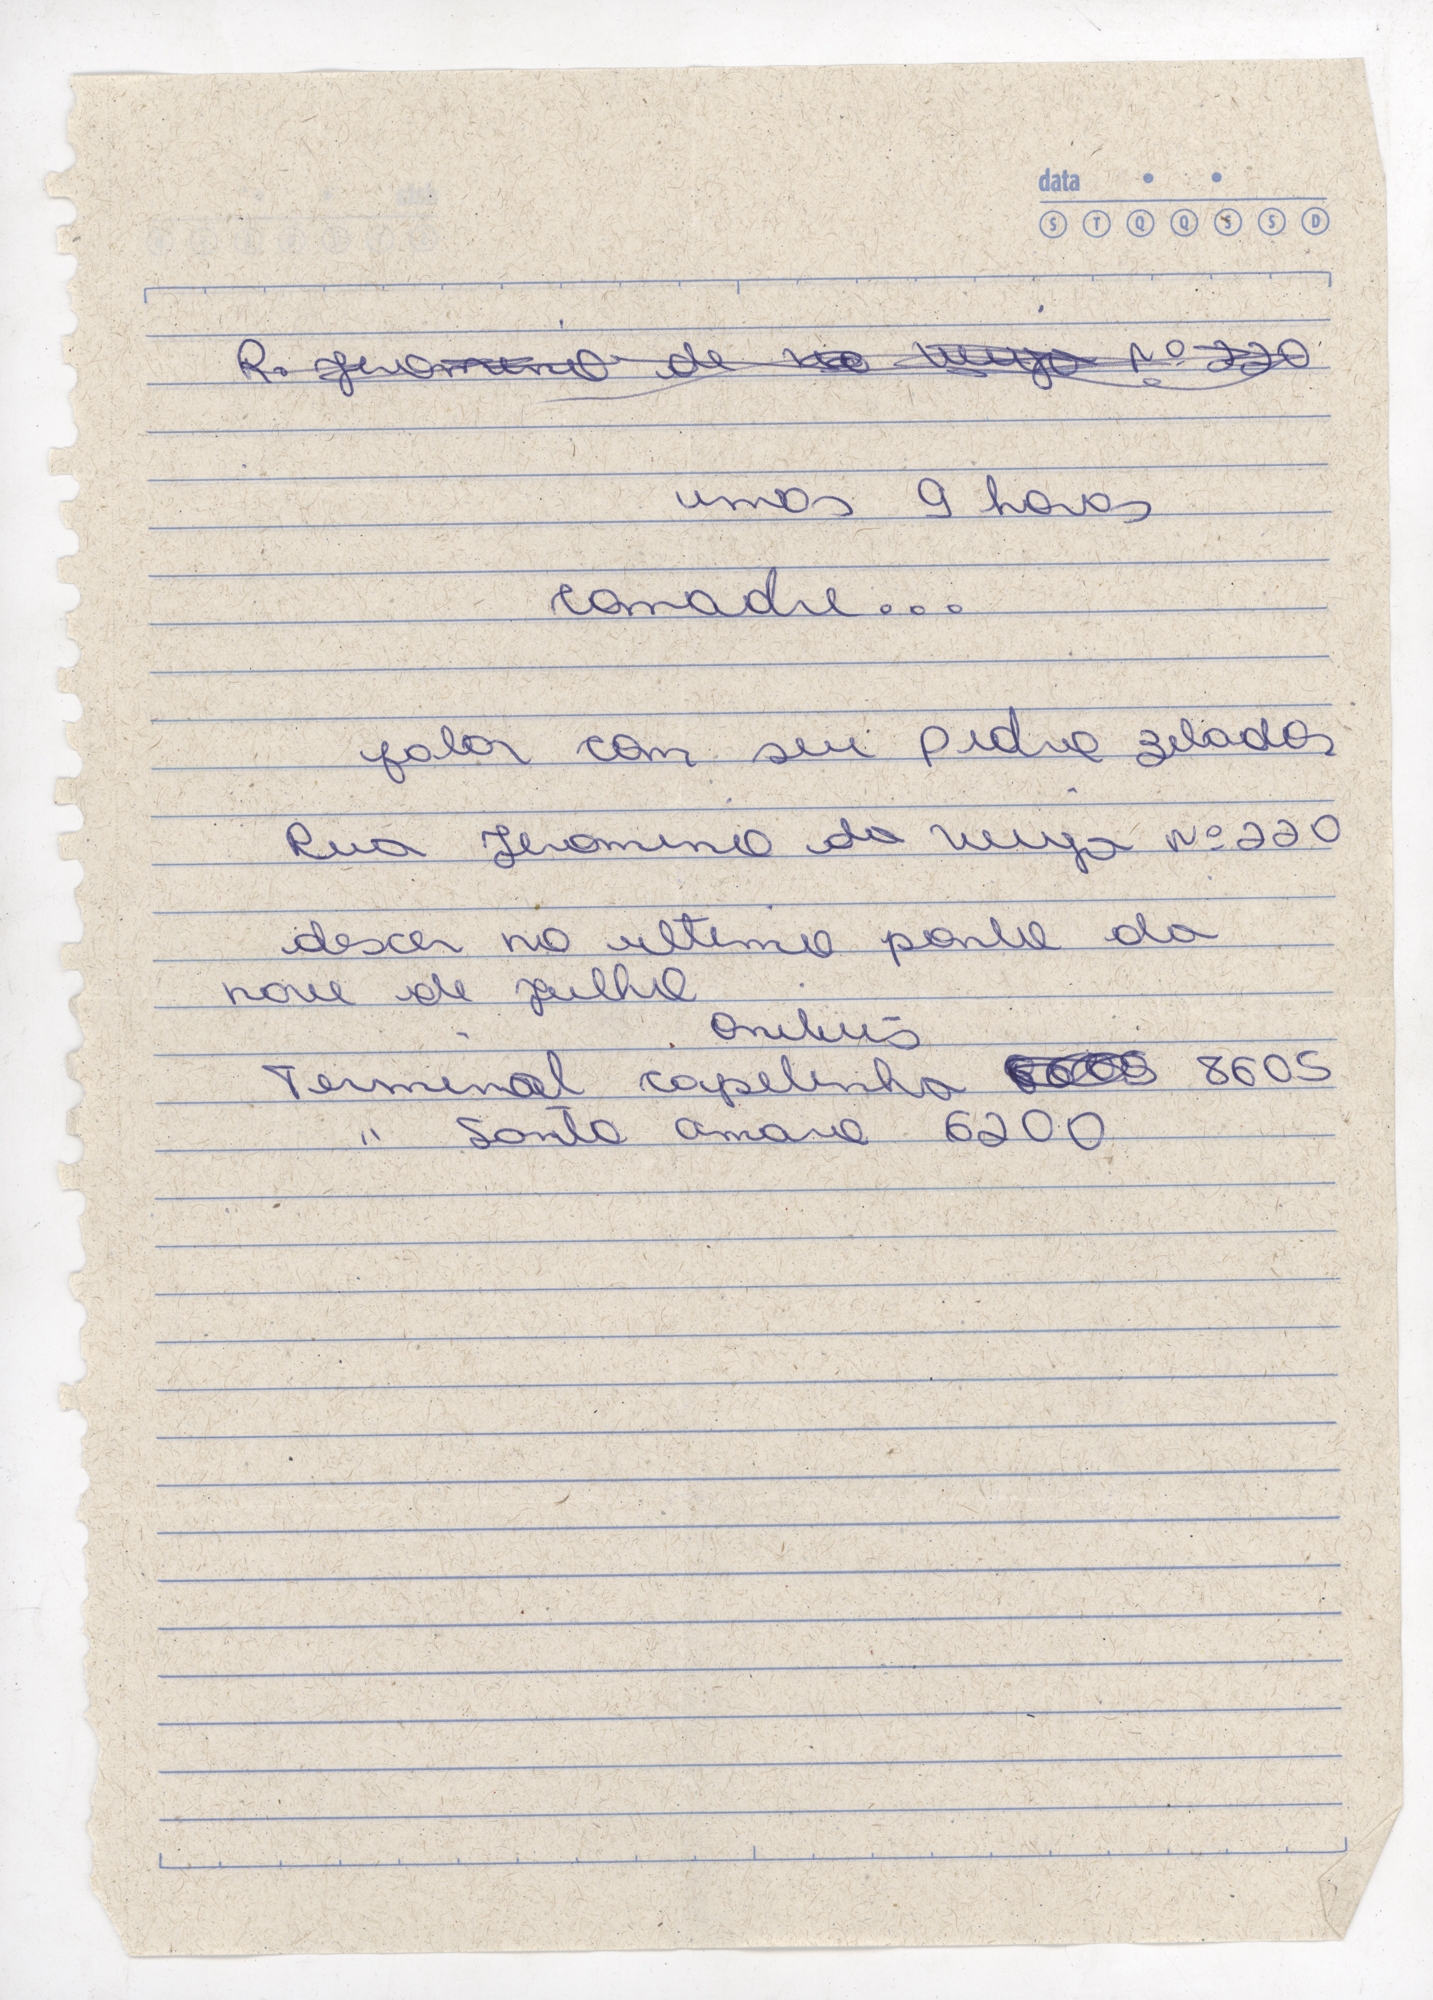 data
S T Q Q S S D
R. Jeronimo de veiga Nº 220
umas 9 horas
comadre...
falar com seu Pedro zelador
Rua Jeronimo da veiga Nº 220
descer no ultimo ponto da
nove de julho
onibus
Terminal capelinha 8605
" Santo amaro 6200